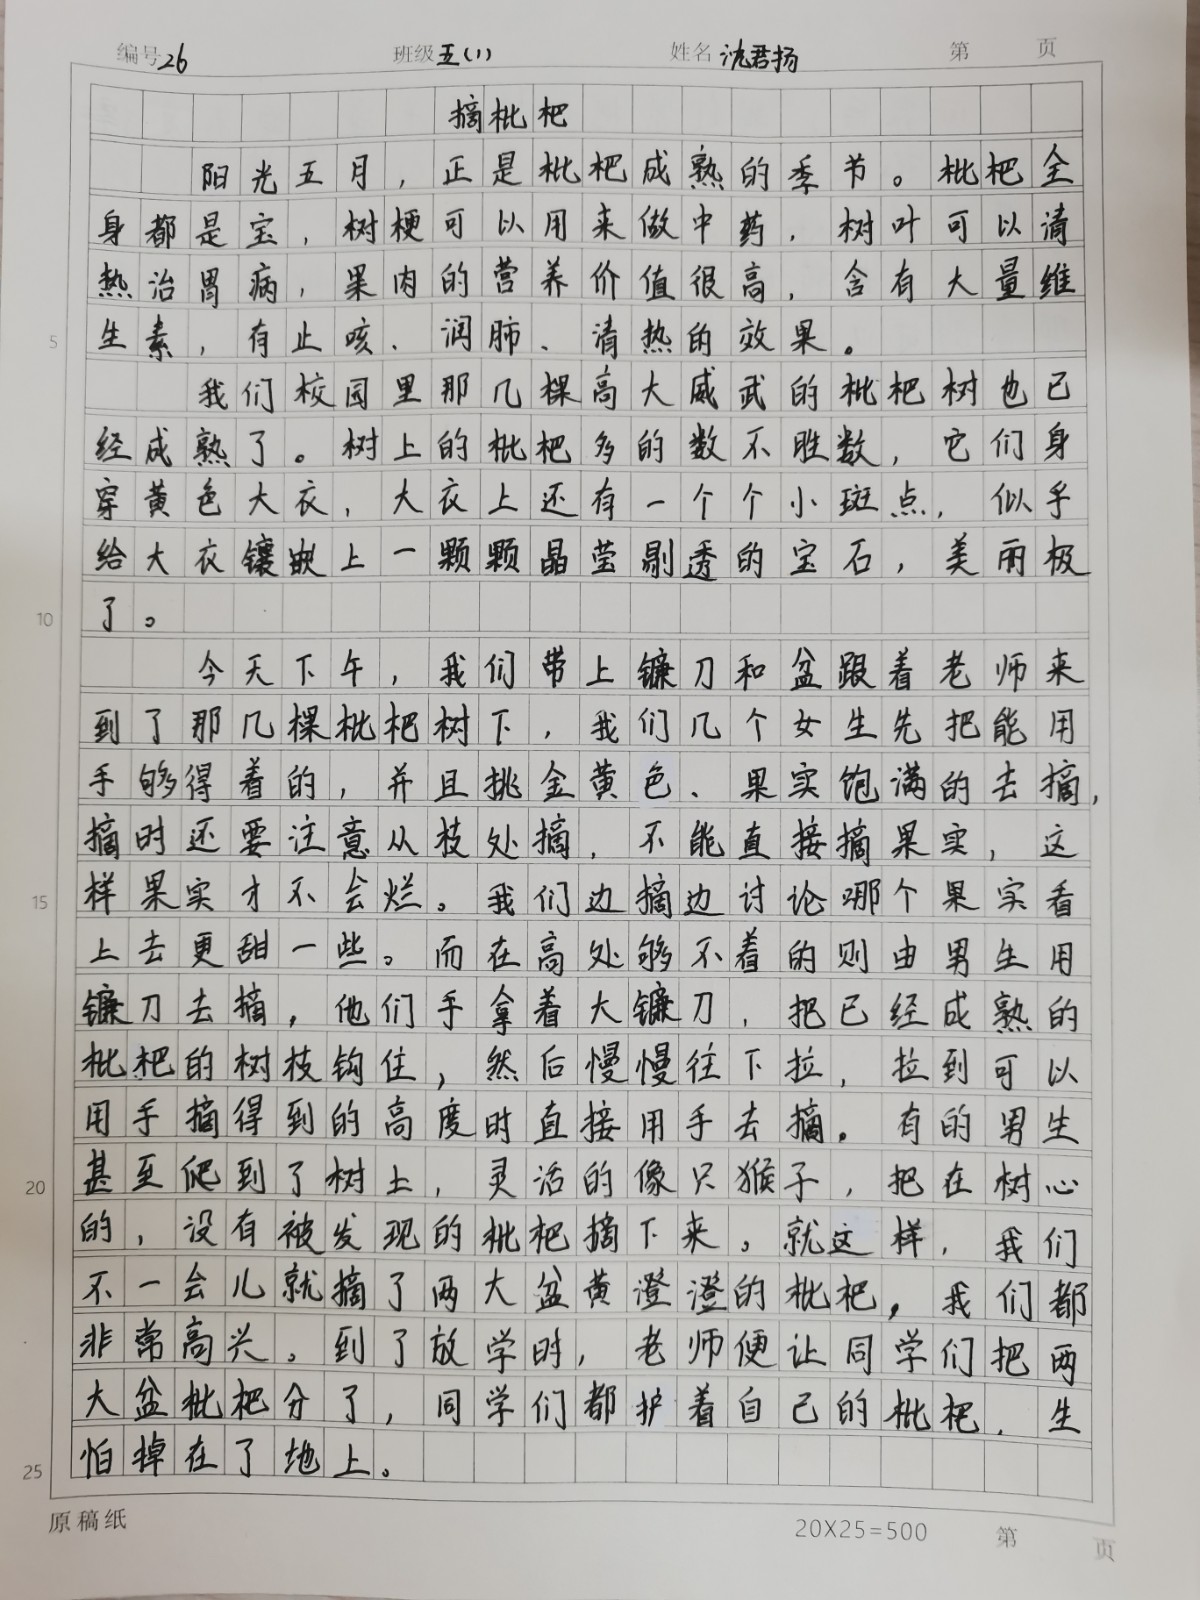 编号26 班级五(1) 姓名沈君扬 第 页
摘枇杷
阳光五月，正是枇杷成熟的季节。枇杷全
身都是宝，树梗可以用来做中药，树叶可以清
热治胃病，果肉的营养价值很高，含有大量维
5 生素，有止咳、润肺、清热的效果。
我们校园里那几棵高大威武的枇杷树也已
经成熟了。树上的枇杷多的数不胜数，它们身
穿黄色大衣，大衣上还有一个个小斑点，似乎
给大衣镶嵌上一颗颗晶莹剔透的宝石，美丽极
10 了。
今天下午，我们带上镰刀和盆跟着老师来
到了那几棵枇杷树下，我们几个女生先把能用
手够得着的，并且挑金黄色、果实饱满的去摘，
摘时还要注意从枝处摘，不能直接摘果实，这
15 样果实才不会烂。我们边摘边讨论哪个果实看
上去更甜一些。而在高处够不着的则由男生用
镰刀去摘，他们手拿着大镰刀，把已经成熟的
枇杷的树枝钩住，然后慢慢往下拉，拉到可以
用手摘得到的高度时直接用手去摘。有的男生
20 甚至爬到了树上，灵活的像只猴子，把在树心
的，没有被发现的枇杷摘下来。就这样，我们
不一会儿就摘了两大盆黄澄澄的枇杷，我们都
非常高兴。到了放学时，老师便让同学们把两
大盆枇杷分了，同学们都护着自己的枇杷，生
25 怕掉在了地上。
原稿纸 20X25=500 第 页